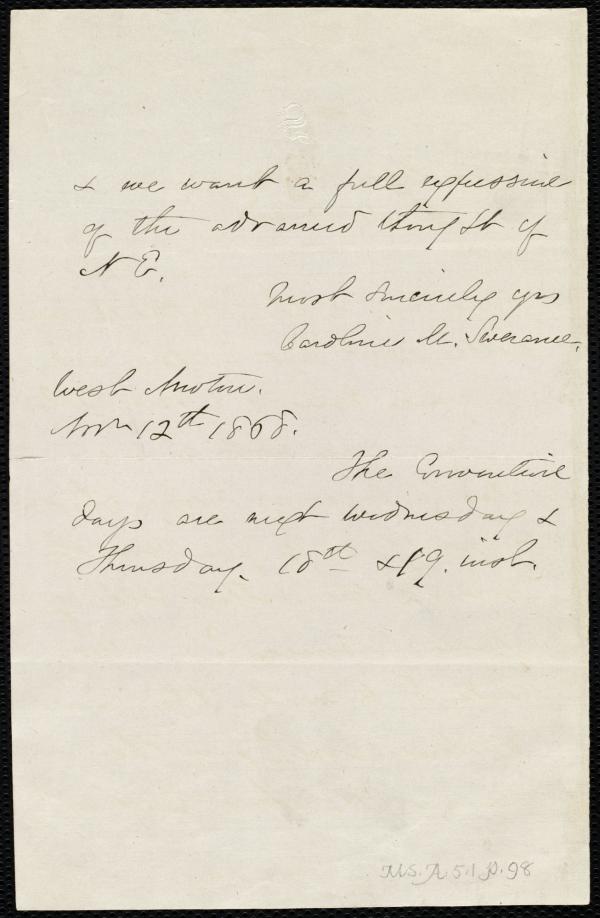 & we want a full expression
of the advanced thought of
N E.
Most sincerely yrs
Caroline M. Severance.
West Newton.
Nov 12th 1868.
The Convention
days are next Wednesday &
Thursday. 18th & 19. inst.
Ms. A. 5.1 p. 98